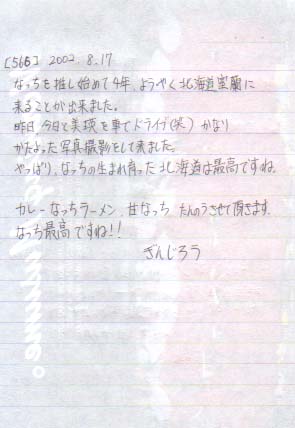 [566] 2002. 8.17
なっちを推し始めて4年、ようやく北海道室蘭に
来ることが出来ました。
昨日、今日と美瑛を車でドライブ(笑) かなり
かたよった写真撮影をして来ました。
やっぱり、なっちの生まれ育った北海道は最高ですね。
カレーなっちラーメン、甘なっち たんのうさせて頂きます。
なっち最高ですね!!
ぎんじろう